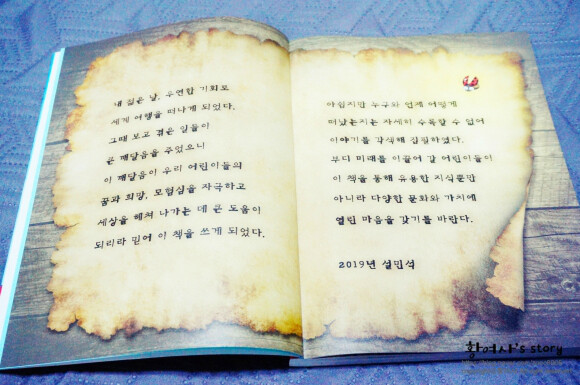 내 젊은 날, 우연한 기회로
세계 여행을 떠나게 되었다.
그때 보고 겪은 일들이
큰 깨달음을 주었으니
이 깨달음이 우리 어린이들의
꿈과 희망, 모험심을 자극하고
세상을 헤쳐 나가는 데 큰 도움이
되리라 믿어 이 책을 쓰게 되었다.
아쉽지만 누구와 언제 어떻게
떠났는지는 자세히 수록할 수 없어
이야기를 각색해 집필하였다.
부디 미래를 이끌어 갈 어린이들이
이 책을 통해 유용한 지식뿐만
아니라 다양한 문화와 가치에
열린 마음을 갖기를 바란다.
2019년 설민석
황여사's story